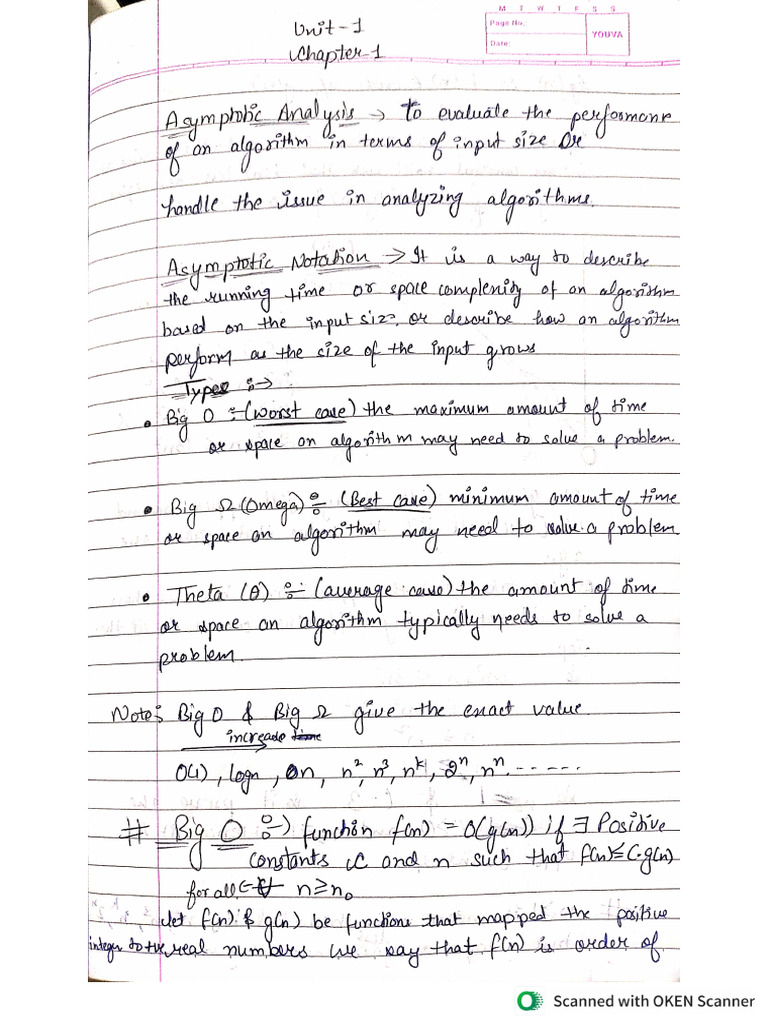 Unit-1
Chapter-1
M T W T F S S
Page No.
Date:
YOUVA
Asymptotic Analysis → to evaluate the performance
of an algorithm in terms of input size or
handle the issue in analyzing algorithms.
Asymptotic Notation → It is a way to describe
the running time or space complexity of an algorithm
based on the input size, or describe how an algorithm
perform as the size of the input grows
Types :→
• Big O ÷ (worst case) the maximum amount of time
or space an algorithm may need to solve a problem.
• Big Ω (Omega) ÷ (Best case) minimum amount of time
or space an algorithm may need to solve a problem.
• Theta (θ) ÷ (average case) the amount of time
or space an algorithm typically needs to solve a
problem.
Note: Big O & Big Ω give the exact value.
increase time
O(1), logn, n, n², n³, nᵏ, 2ⁿ, nⁿ ------
# Big O ÷) function f(n) = O(g(n)) if ∃ Positive
constants C and n such that f(n) ≤ C.g(n)
for all n ≥ n₀
Let f(n) & g(n) be functions that mapped the positive
integer to the real numbers we say that f(n) is order of
Scanned with OKEN Scanner